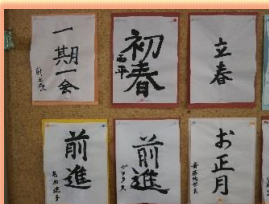 一期一会
初春
立春
前進
前進
お正月